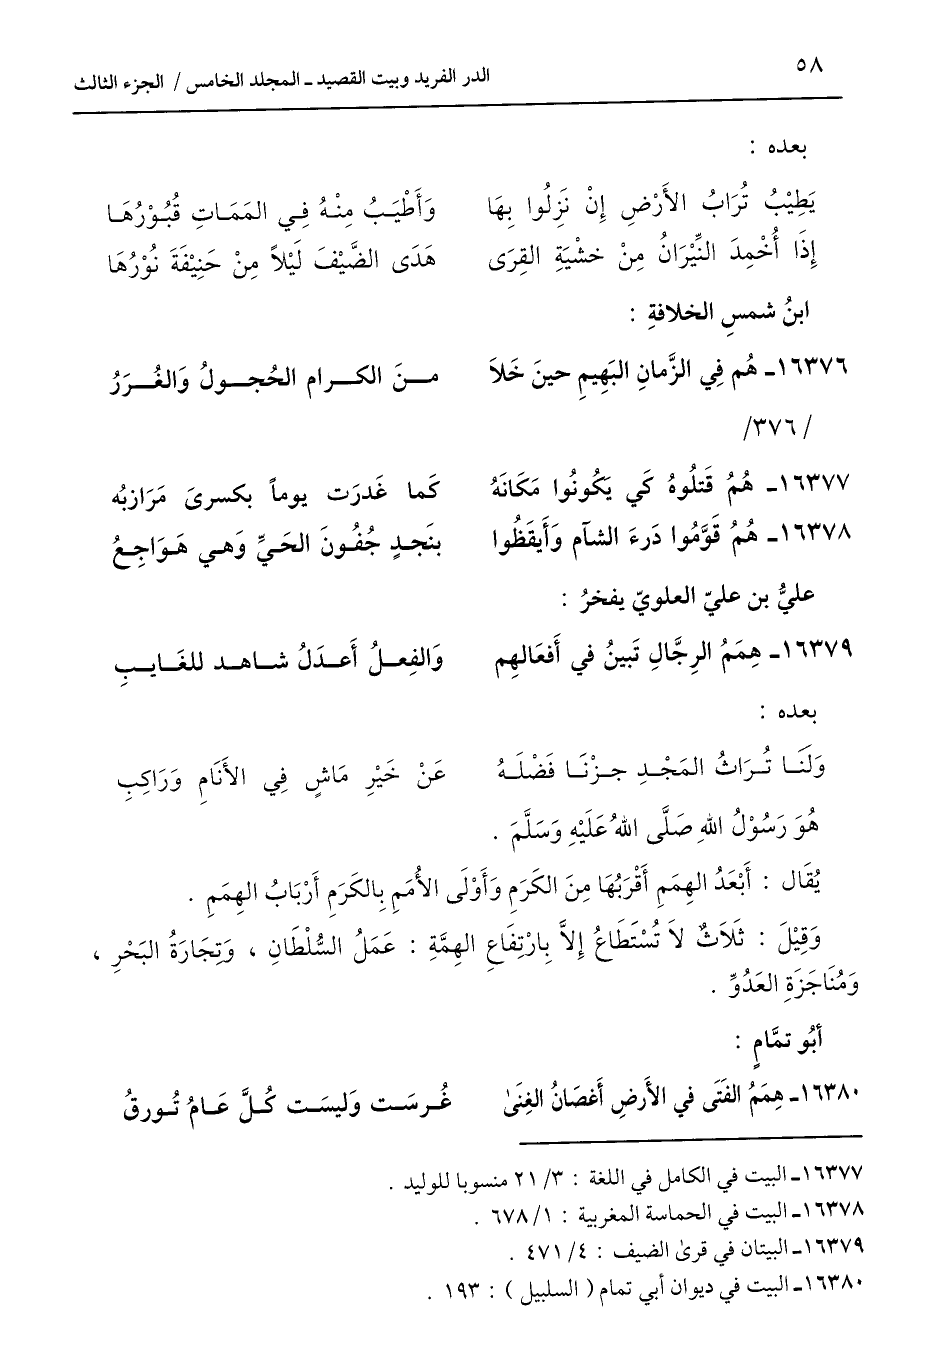 ٥٨
الدر الفريد وبيت القصيد ـ المجلد الخامس / الجزء الثالث
بعده :
يَطِيْبُ تُرَابُ الأَرْضِ إِنْ نَزِلُوا بِهَا وَأَطْيَبُ مِنْهُ فِي المَمَاتِ قُبُوْرُهَا
إِذَا أُخْمِدَ النِّيْرَانُ مِنْ خشْيَةِ القِرَى هَدَى الضَّيْفَ لَيْلاً مِنْ حَنِيْفَةَ نُوْرُهَا
ابنُ شمسِ الخلافةِ :
١٦٣٧٦ـ هُم فِي الزَّمانِ البَهِيمِ حينَ خَلاَ مـنَ الكـرام الحُجـولُ وَالغُـرَرُ
/ ٣٧٦/
١٦٣٧٧ـ هُمُ قَتلُوهُ كَي يَكُونُوا مَكَانَهُ كَما غَدرَت يوماً بكسرىَ مَرَازبُه
١٦٣٧٨ـ هُمُ قَوَّمُوا دَرءَ الشآم وَأَيقَظُوا بنَجدٍ جُفُونَ الحَيِّ وَهي هَوَاجِعُ
عليُّ بن عليّ العلويّ يفخرُ :
١٦٣٧٩ـ هِمَمُ الرِجَّالِ تَبينُ في أَفعَالهِم وَالفِعلُ أَعدَلُ شاهد للغَايبِ
بعده :
وَلَنَا تُرَاثُ المَجْدِ جزْنَا فَضْلَهُ عَنْ خَيْرِ مَاشٍ فِي الأَنَامِ وَرَاكِبِ
هُوَ رَسُوْلُ اللهِ صَلَّى اللهُ عَلَيْهِ وَسَلَّمَ .
يُقَال : أَبْعَدُ الهِمَمِ أَقْرَبُهَا مِنَ الكَرَمِ وَأَوْلَى الأُمَمِ بِالكَرَمِ أَرْبَابُ الهِمَمِ .
وَقِيْلَ : ثَلاَثٌ لاَ تُسْتَطَاعُ إِلاَّ بِارْتِفَاعِ الهِمَّةِ : عَمَلُ السُّلْطَانِ ، وَتِجَارَةُ البَحْرِ ،
وَمُنَاجَزَةِ العَدُوِّ .
أَبُو تمَّامٍ :
١٦٣٨٠ـ هِمَمُ الفَتَى في الأَرضِ أَغصَانُ الغِنَىٰ غُرسَت وَليسَت كُلَّ عَامُ تُورقُ
١٦٣٧٧ـ البيت في الكامل في اللغة : ٣/ ٢١ منسوبا للوليد .
١٦٣٧٨ـ البيت في الحماسة المغربية : ١/ ٦٧٨ .
١٦٣٧٩ـ البيتان في قرىٰ الضيف : ٤/ ٤٧١ .
١٦٣٨٠ـ البيت في ديوان أبي تمام ( السلبيل ) : ١٩٣ .